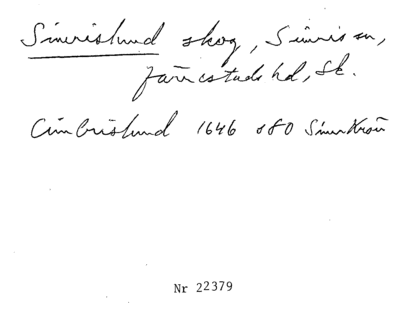 Simrislund skog, Simris sn,
Järrestads hd, Sk.
Cimbrislund 1646 s 80
Nr 22379